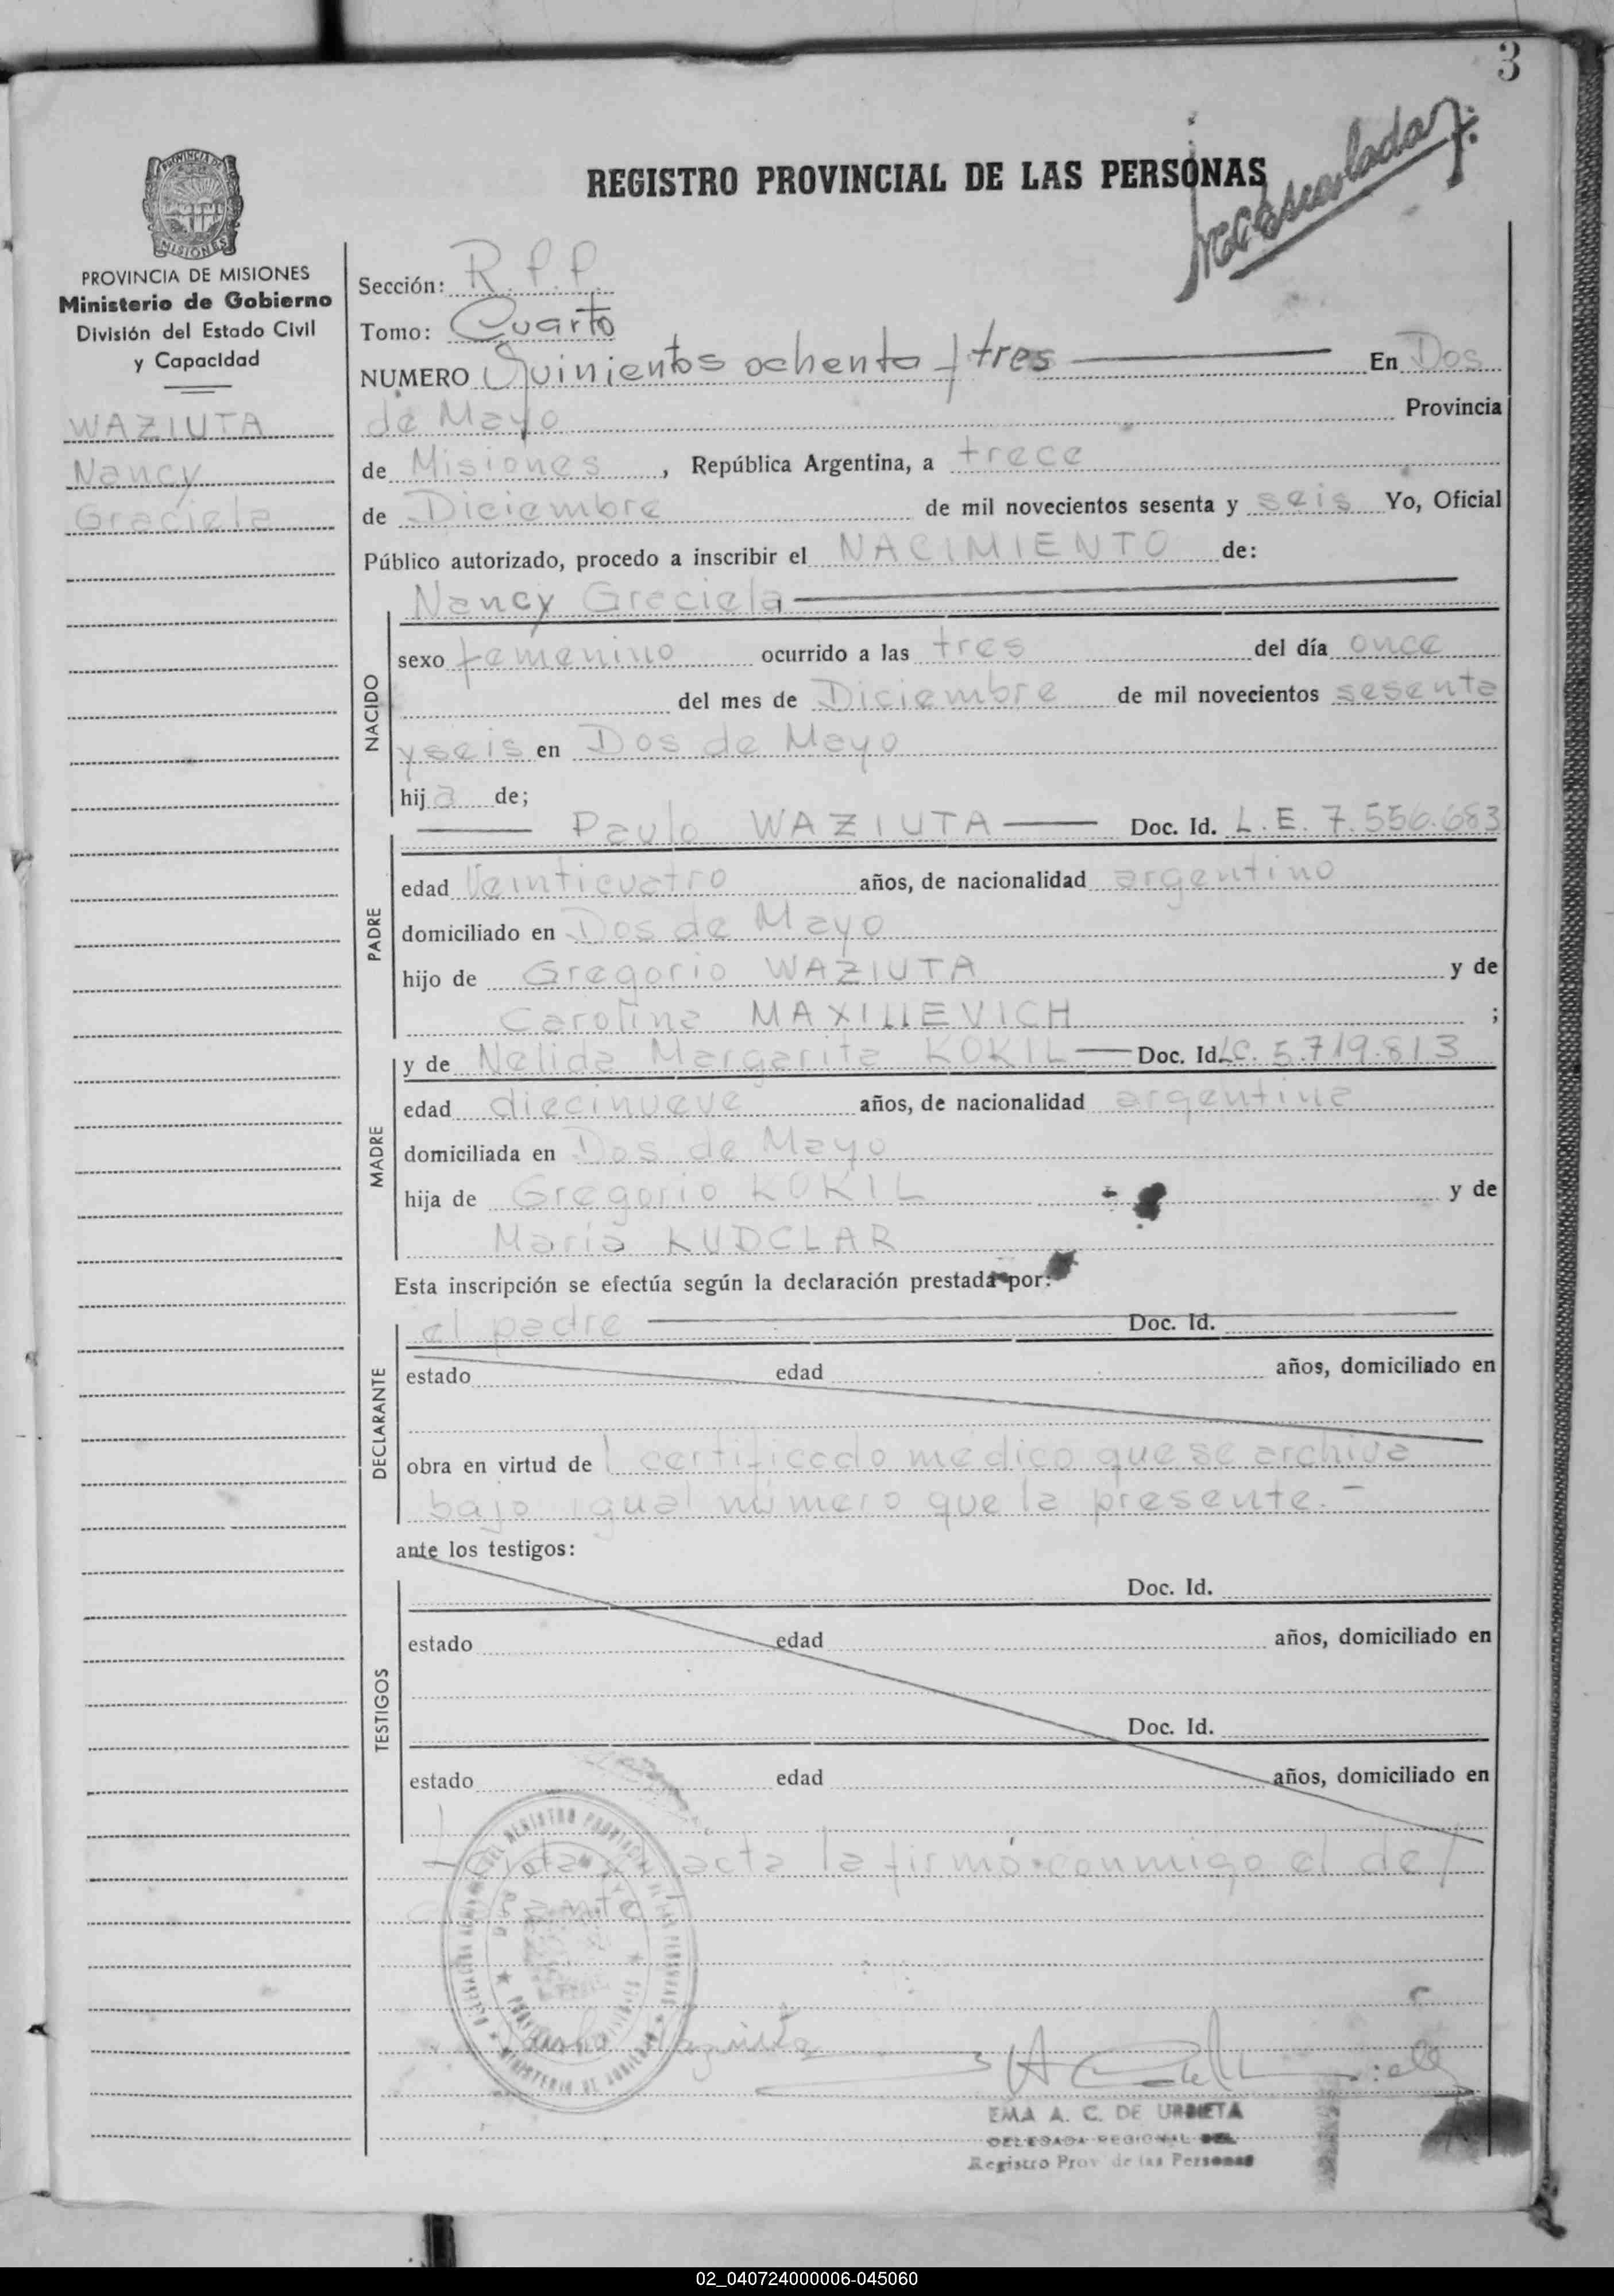 3
REGISTRO PROVINCIAL DE LAS PERSONAS
PROVINCIA DE
MISIONES
PROVINCIA DE MISIONES
Ministerio de Gobierno
División del Estado Civil
y Capacidad
WAZIUTA
Nancy
Graciela
Sección: R.P.P.
Tomo: Cuarto
NUMERO Quinientos ochenta y tres En Dos
de Mayo Provincia
de Misiones, República Argentina, a trece
de Diciembre de mil novecientos sesenta y seis Yo, Oficial
Público autorizado, procedo a inscribir el NACIMIENTO de:
Nancy Graciela
NACIDO
sexo femenino ocurrido a las tres del día once
del mes de Diciembre de mil novecientos sesenta
y seis en Dos de Mayo
hija de;
Paulo WAZIUTA Doc. Id. L.E. 7.556.683
PADRE
edad Veinticuatro años, de nacionalidad argentino
domiciliado en Dos de Mayo
hijo de Gregorio WAZIUTA y de
Carolina MAXILIEVICH ;
y de Nelida Margarita KOKIL Doc. Id. LC. 5.719.813
MADRE
edad diecinueve años, de nacionalidad argentina
domiciliada en Dos de Mayo
hija de Gregorio KOKIL y de
María KUDCLAR
Esta inscripción se efectúa según la declaración prestada por:
el padre Doc. Id.
DECLARANTE
estado edad años, domiciliado en
obra en virtud de l certificado medico que se archiva
bajo igual número que la presente.-
ante los testigos:
Doc. Id.
TESTIGOS
estado edad años, domiciliado en
Doc. Id.
estado edad años, domiciliado en
acta la firmó conmigo el de/
EMA A. C. DE URBIETA
DELEGADA REGIONAL DEL
Registro Prov de las Personas
02_040724000006-045060